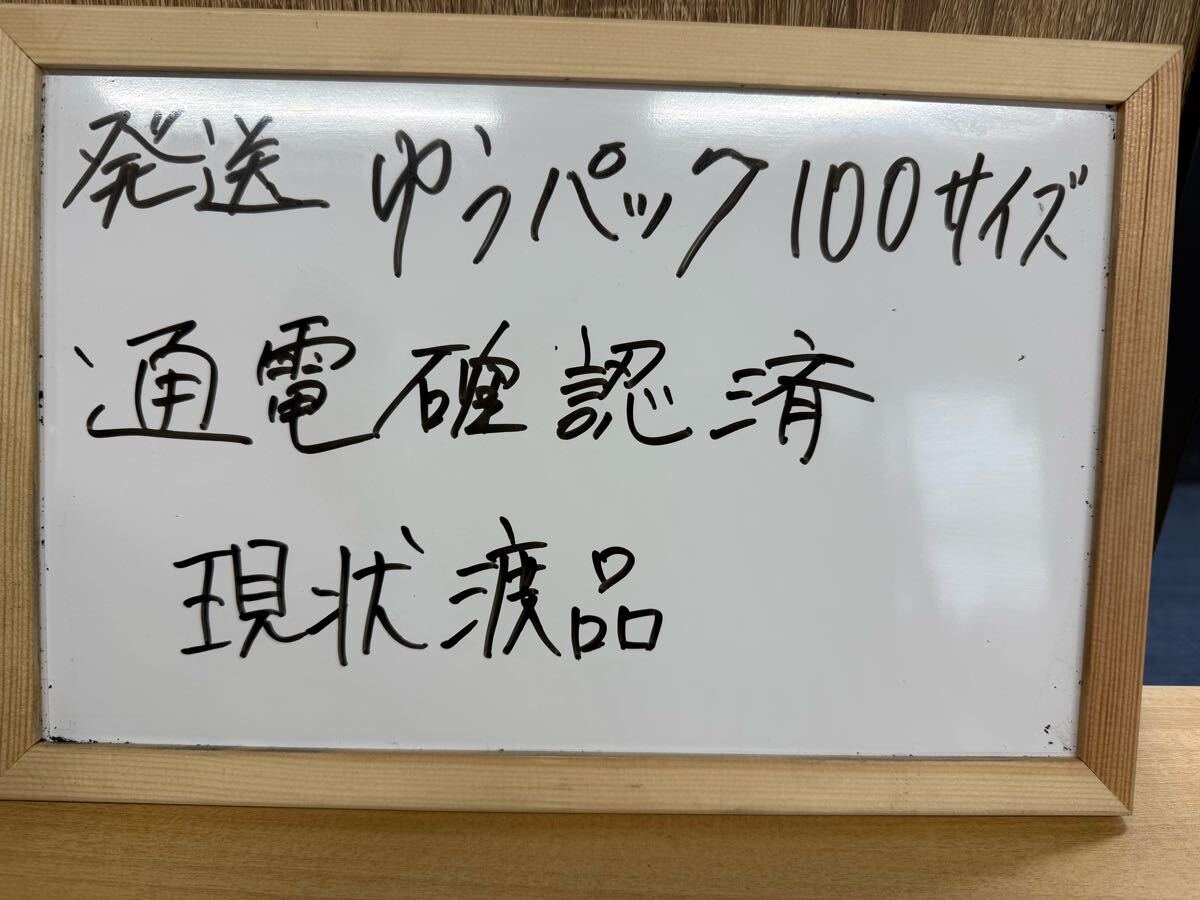 発送 ゆうパック100サイズ
通電確認済
現状渡品